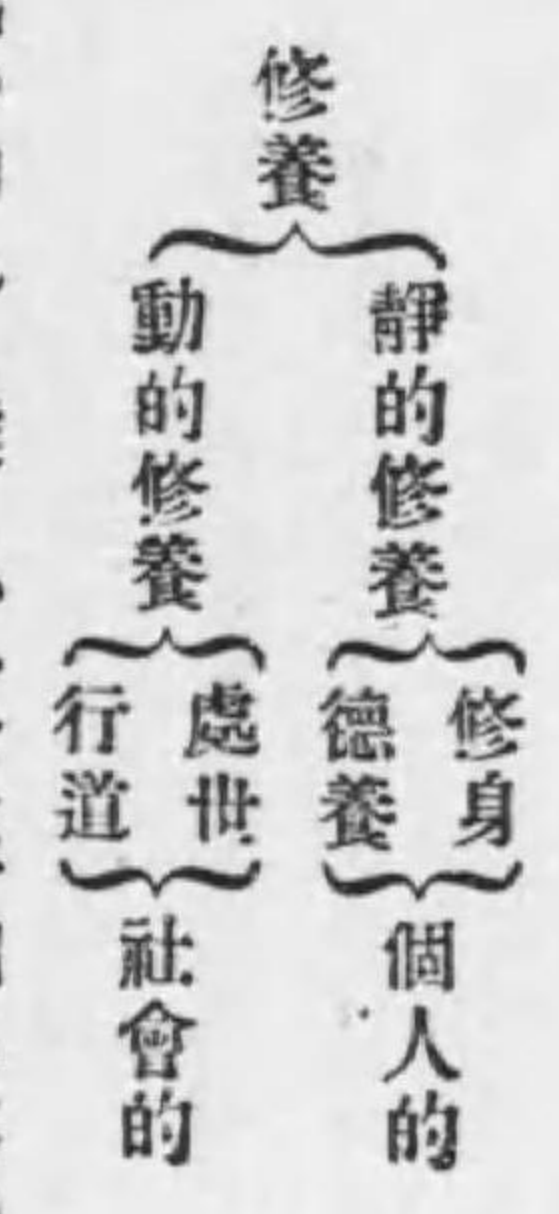 修養
靜的修養
修身
德養
個人的
動的修養
處世
行道
社會的